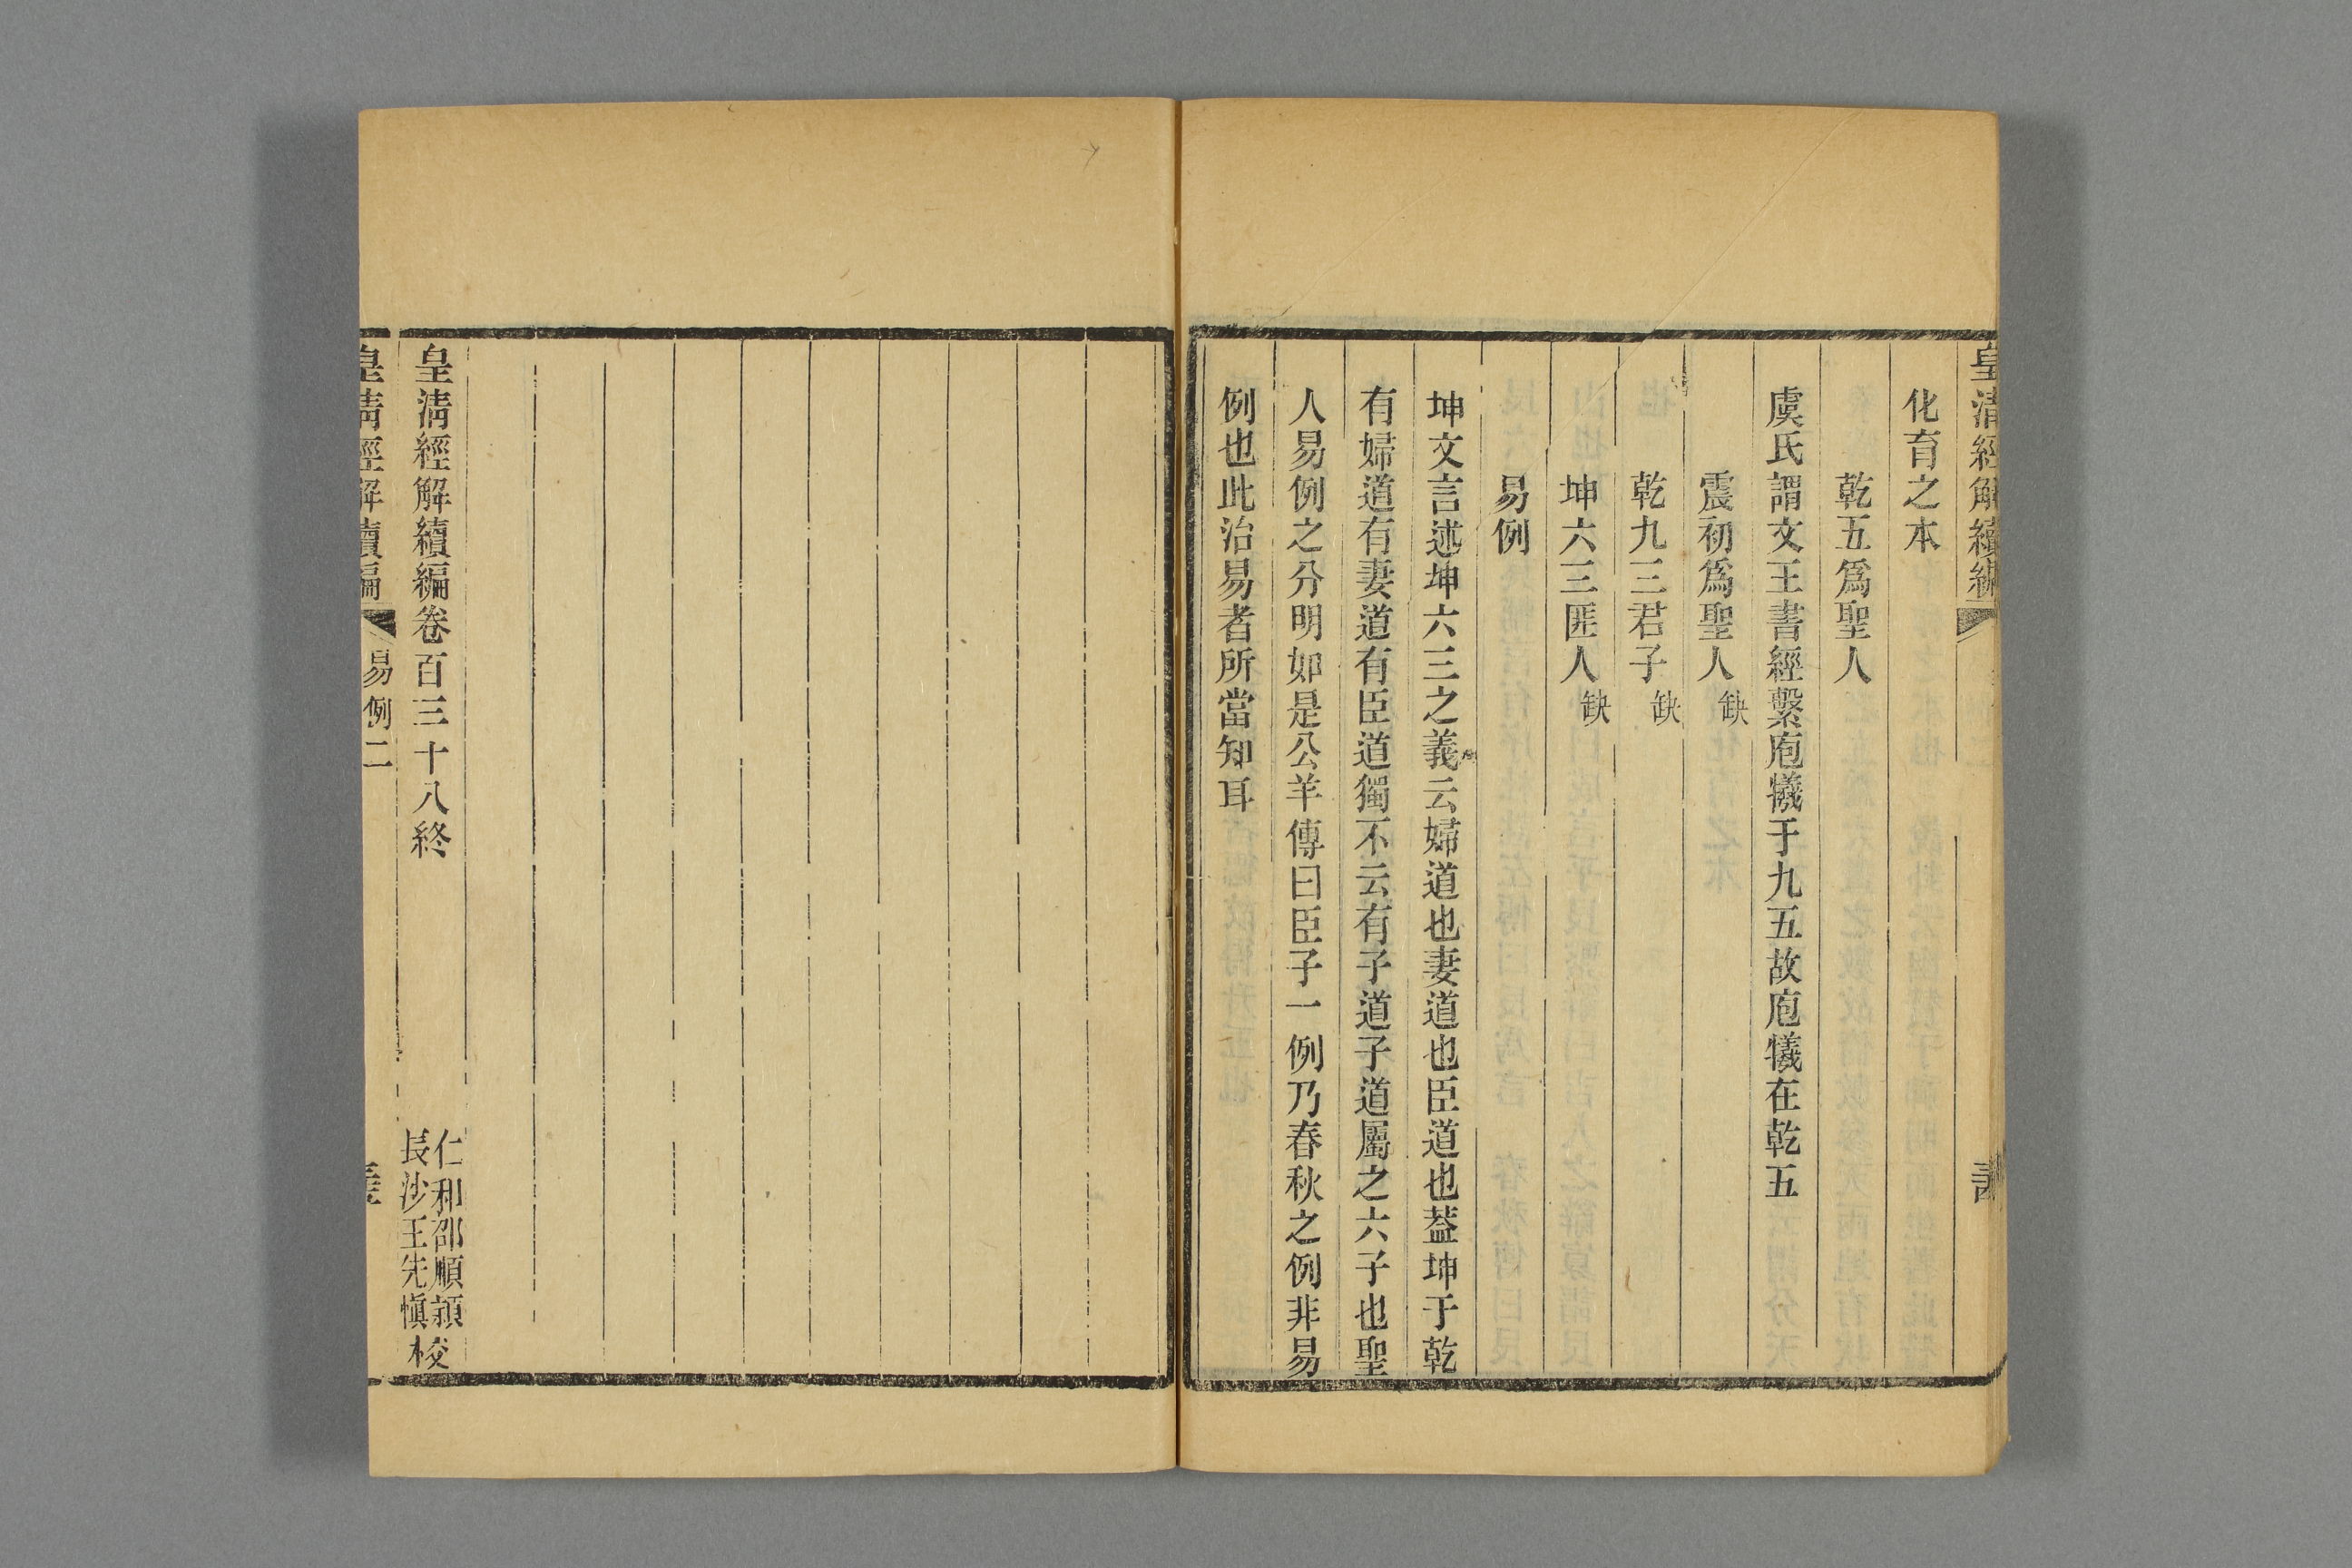 皇清經解續編
化育之本
乾五爲聖人
虞氏謂文王書經繫庖犧于九五故庖犧在乾五
震初爲聖人缺
乾九三君子缺
坤六三匪人缺
易例
坤文言述坤六三之義云婦道也妻道也臣道也葢坤于乾
有婦道有妻道有臣道獨不云有子道子道屬之六子也聖
人易例之分明如是公羊傳曰臣子一例乃春秋之例非易
例也此治易者所當知耳
皇清經解續編卷百三十八終
仁和邵順頴
長沙王先愼
校
皇清經解續編
易例二